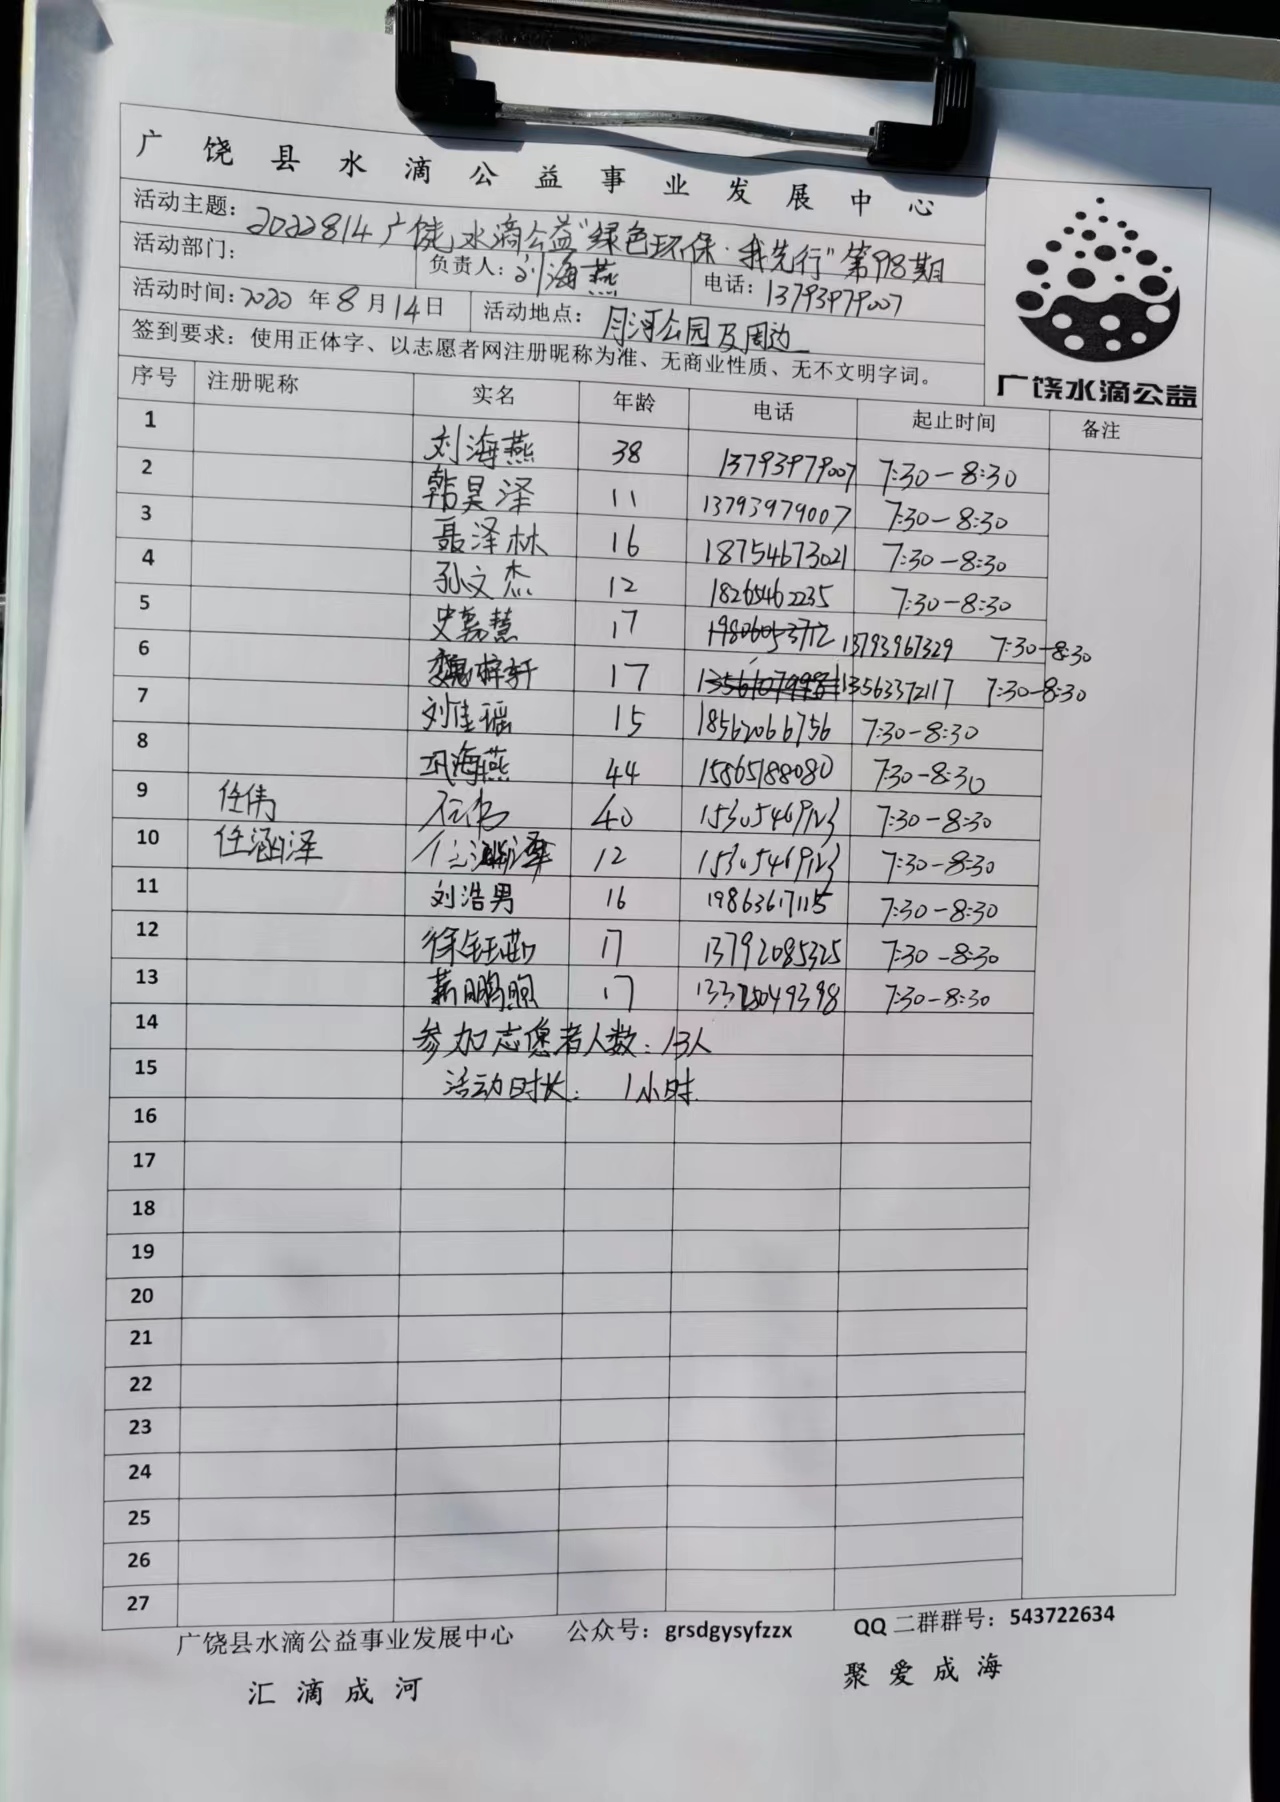 广饶县水滴公益事业发展中心
活动主题：2022814广饶水滴公益"绿色环保·我先行"第98期
活动部门： 负责人：刘海燕 电话：13793979007
活动时间：2022年8月14日 活动地点：月河公园及周边
签到要求：使用正体字、以志愿者网注册昵称为准、无商业性质、无不文明字词。
广饶水滴公益
序号 注册昵称 实名 年龄 电话 起止时间 备注
1 刘海燕 38 13793979007 7:30-8:30
2 韩昊泽 11 13793979007 7:30-8:30
3 聂泽林 16 18754673021 7:30-8:30
4 孙文杰 12 18265462235 7:30-8:30
5 史嘉慧 17 13793967329 7:30-8:30
6 魏梓轩 17 13563372117 7:30-8:30
7 刘佳瑶 15 18562066756 7:30-8:30
8 巩海燕 44 15865188080 7:30-8:30
9 任伟 任伟 40 15305469123 7:30-8:30
10 任涵泽 任涵泽 12 15305469123 7:30-8:30
11 刘浩男 16 19863617115 7:30-8:30
12 徐钰茹 17 13792085325 7:30-8:30
13 17 7:30-8:30
14 参加志愿者人数：13人
15 活动时长：1小时
16
17
18
19
20
21
22
23
24
25
26
27
广饶县水滴公益事业发展中心 公众号：grsdgysyfzzx QQ二群群号：543722634
汇滴成河 聚爱成海